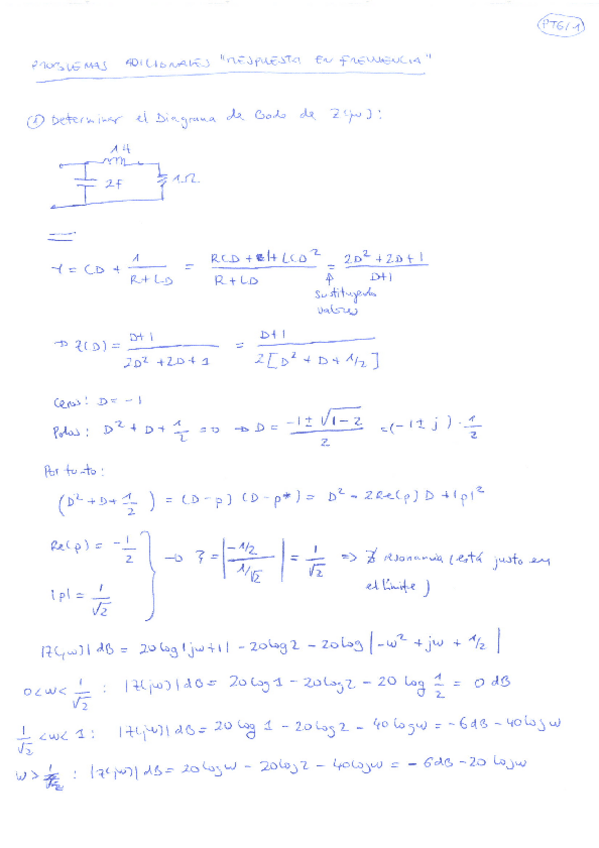 PTG/1
PROBLEMAS ADICIONALES "RESPUESTA EN FRECUENCIA"
① Determinar el Diagrama de Bode de Z(jω):
1H
2F
1Ω
Y = CD + 1/(R+LD) = (RCD + 1 + LCD²)/(R+LD) = (2D² + 2D + 1)/(D+1)
↑
sustituyendo
valores
→ Z(D) = (D+1)/(2D² + 2D + 1) = (D+1)/(2[D² + D + 1/2])
Ceros: D = -1
Polos: D² + D + 1/2 = 0 → D = (-1 ± √(1-2))/2 = (-1 ± j) · 1/2
Por tanto:
(D² + D + 1/2) = (D-p)(D-p*) = D² - 2Re(p)D + |p|²
Re(p) = -1/2
|p| = 1/√2
→ ζ = |(-1/2)/(1/√2)| = 1/√2 ⇒ ∄ resonancia (está justo en
el límite)
|Z(jω)| dB = 20log|jω+1| - 20log2 - 20log|-ω² + jω + 1/2|
0<ω<1/√2 : |Z(jω)| dB = 20log1 - 20log2 - 20 log 1/2 = 0 dB
1/√2 <ω< 1 : |Z(jω)| dB = 20 log 1 - 20log2 - 40logω = -6dB - 40logω
ω> : |Z(jω)| dB = 20logω - 20log2 - 40logω = -6dB - 20 logω